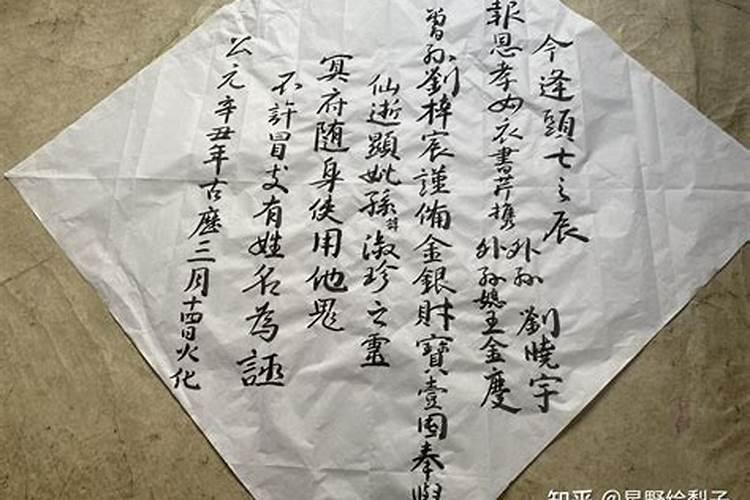 今逢頭七之辰
報恩孝女衣書芹携
外孫 劉曉宇
外孫媳王金慶
曾孫劉梓宸謹俻金銀財寶壹囤奉與
仙逝顯妣孫諱淑珍之靈
冥府随身使用他鬼
不許冒支有姓名為証
公元辛丑年古曆三月十四日火化
知乎 @星野给梨子